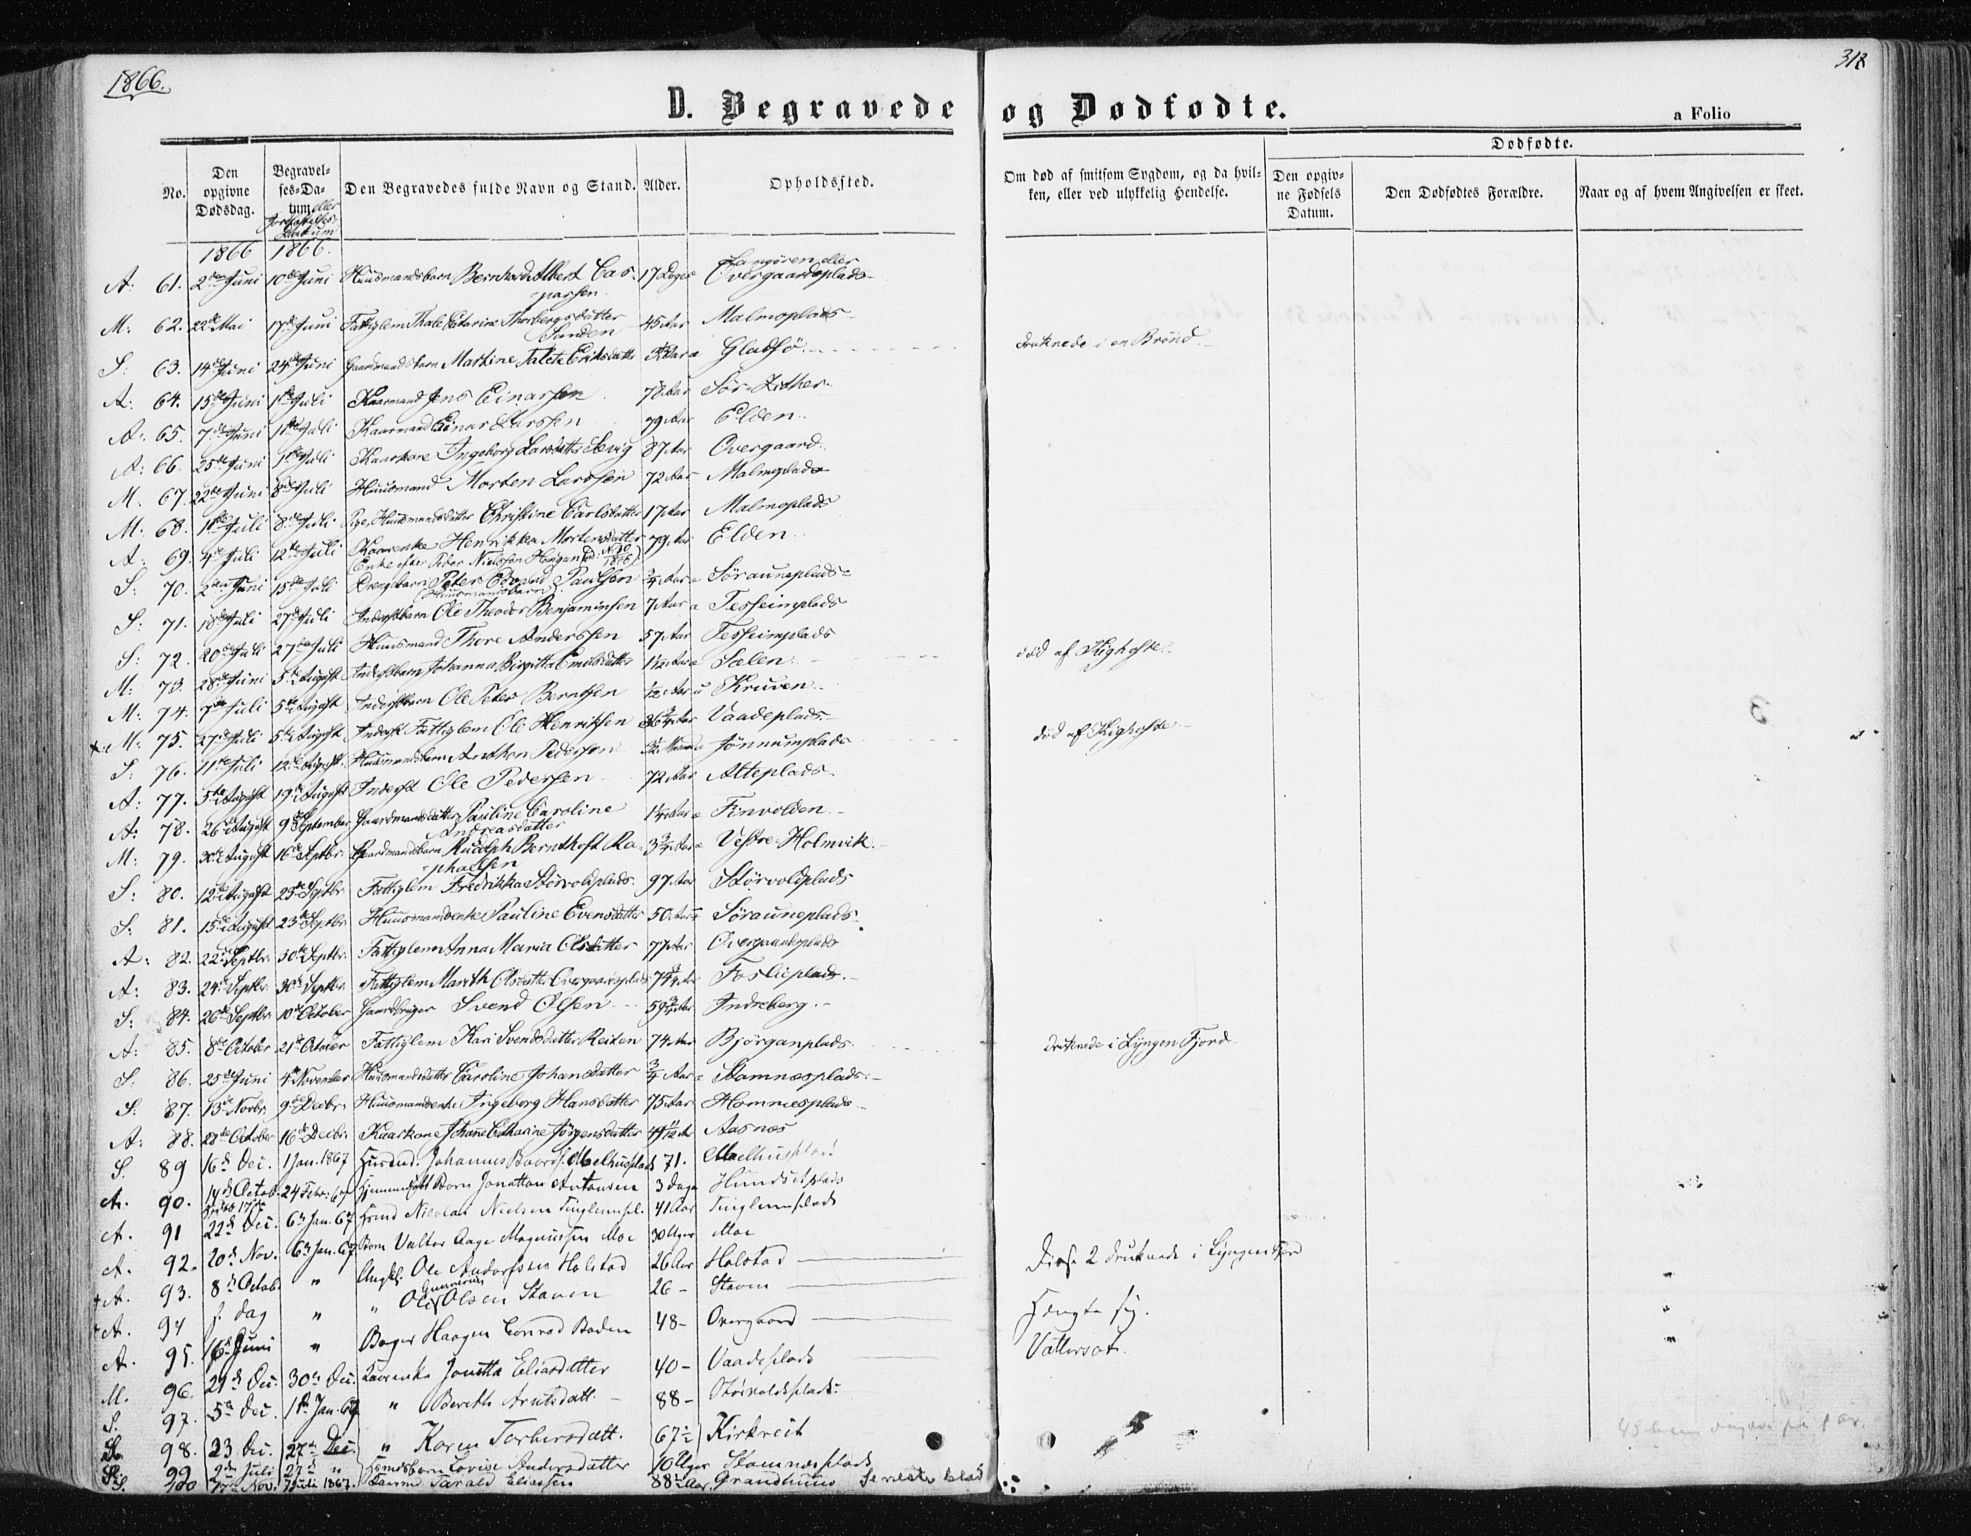 1866.
318
D. Begravede og Dødfødte.
a Folio
No.
Den opgivne Dødsdag.
Begravelses-Datum eller Jordfæstelses Datum
Den Begravedes fulde Navn og Stand.
Alder.
Opholdssted.
Om død af smitsom Sygdom, og da hvilken, eller ved ulykkelig Hendelse.
Dødfødte.
Den opgivne Fødsels Datum.
Den Dødfødtes Forældre.
Naar og af hvem Angivelsen er skeet.
1866 1866.
A: 61. 2den Juni 10de Juni Huusmandsbarn Bernhard Albert Casparsen 17 Dage Overgaardsplads
M: 62. 22de Mai 17de Juni Fattiglem Thale Catarine Thorbergsdatter Sanden 45 Aar Malmoplads
S: 63. 14de Juni 24de Juni Gaardmandsbarn Martine Eriksdatter Gladsø druknede i en Brønd.
A: 64. 15de Juni 1ste Juli Kaarmand Jens Einarssen 78 Aar
A: 65. 7de Juni 1ste Juli Kaarmand Einar Larssen 79 Aar Elden
A: 66. 25de Juni 1ste Juli Kaarkone Ingeborg Larsdatter 87 Aar Overgaard
M. 67. 22de Juni 8de Juli Huusmand Morten Larssen 72 Aar Malmoplads
M: 68. 1ste Juli 8de Juli Pige, Huusmandsdatter Christine Carlsdatter 17 Aar Malmoplads
A: 69. 4de Juli 12te Juli Kaarenke Henrikka Mortensdatter 79 Aar Elden
(Enke efter Peder Nielssen Haugan 1866)
S: 70. 2den Juni 15de Juli Peter Edvard Paulsen 3/4 Aar Søraunеplads
(Huusmandsbarn)
S: 71. 18de Juli 27de Juli Inderstbarn Ole Theodor Benjaminsen 7 Aar Tesseimplads
S: 72. 20de Juli 27de Juli Huusmand Thore Anderssen 57 Aar Tesseimplads
M: 73. 28de Juni 5te August Inderstbarn Johanna Birgitta Emilsdatter 1½ Aar Sælen død af Kighoste.
M: 74. 7de Juli 5te August Inderstbarn Ole Peter Berntsen Aar Kruven
M: 75. 27de Juli 5te August Inderst Fattiglem Ole Henriksen Aar Vaadeplads
S: 76. 11te Juli 12te August Huusmandsbarn Anthon Pedersen Jønnumplads død af Kighoste
A: 77. 5te August 19de August Inderst Ole Pedersen 72 Aar Alteplads
A: 78. 26de August 9de September Gaardmandsdatter Pauline Caroline Andreasdatter Aar Finvolden
M: 79. 30te August 16de Septbr. Gaardmandsbarn Rudolph Bernthoft Raphaelsen 3 3/4 Aar Vestre-Holmvik
S: 80. 12te August 23de Septbr. Fattiglem Fredrikka Størvoldplads 97 Aar Størvoldplads
S: 81. 15de August 23de Septbr. Huusmandsenke Pauline Evensdatter 50 Aar Søraunеplads
A: 82. 22de Septbr. 30te Septbr. Fattiglem Anna Maria Olsdatter 77 Aar Overgaardsplads
A: 83. 24de Septbr. 30te Septbr. Fattiglem Marith Olsdatter Overgaardsplads 74 3/4 Aar Foslieplads
S: 84. 26de Septbr. 10de October Gaardbruger Svend Olsen 59 3/4 Aar Indreberg
A: 85. 8de October 21de October Fattiglem Kari Svendsdatter Reiten 74 Aar Bjørganplads
S: 86. 25de Juni 4de November Huusmandsdatter Caroline Johansdatter 3/4 Aar Stamnæsplads druknede i Lyngen Fjord
S: 87. 13de Novbr. 9de Decbr. Huusmandsenke Ingeborg Hansdatter 75 Aar Homnesplads
A: 88. 28de October 16de Decbr. Kaarkone Johanne Catharine Jørgensdatter Aasnæs
S. 89 16de Dec. 1 Jan. 1867 Husmd. Johannes Baards. Melhusplads 71. Melhusplads
A. 90. 14de Octob. 24 Febr. 67 Barn Jonathan Antonsen 3 Dage Hundsetplads
A. 91 22de Dec. 6te Jan. 67 Husmd Nicolai Nielsen Tinglumpl. 41 Aar Tinglumplads
A. 92. 20de Nov. 6te Jan. 67 Barn Valter Aage Magnussen Moe 30 Uger Moe
A. 93. 8de Octob. " Ungkl. Ole Andersen Holstad 26 Aar Holstad Disse 2 druknede i Lyngen Fjord
A. 94 s. dag " " Ole Gunnerius Olsen Staven 26 - Staven
A. 95. 16de Juni " Bager Haagen Conrad Boden 48 - Overgaard Hængte sig.
M. 96. 21de Dec. 30te Dec. Kaarenke Jonetta Eliasdatter 40 - Vaadeplads Vattersot.
S. 97. 5te Dec. 1ste Jan. 67 " Bereth Arntsdatt. 88 - Størvoldsplads
S. 98. 23 Dec. 27de Dec. " Karen Torbersdatt. 67½ Kirkreit
S. 99 2den Juli 27de " Husmdsbarn Lovise Andersdatter 10 Uger Stamnæsplads
S. 100 17de Nov. 7 Juli 1867. Kaarmd. Tarald Eliassen 88½ Aar. Grandhuus Se neste blad